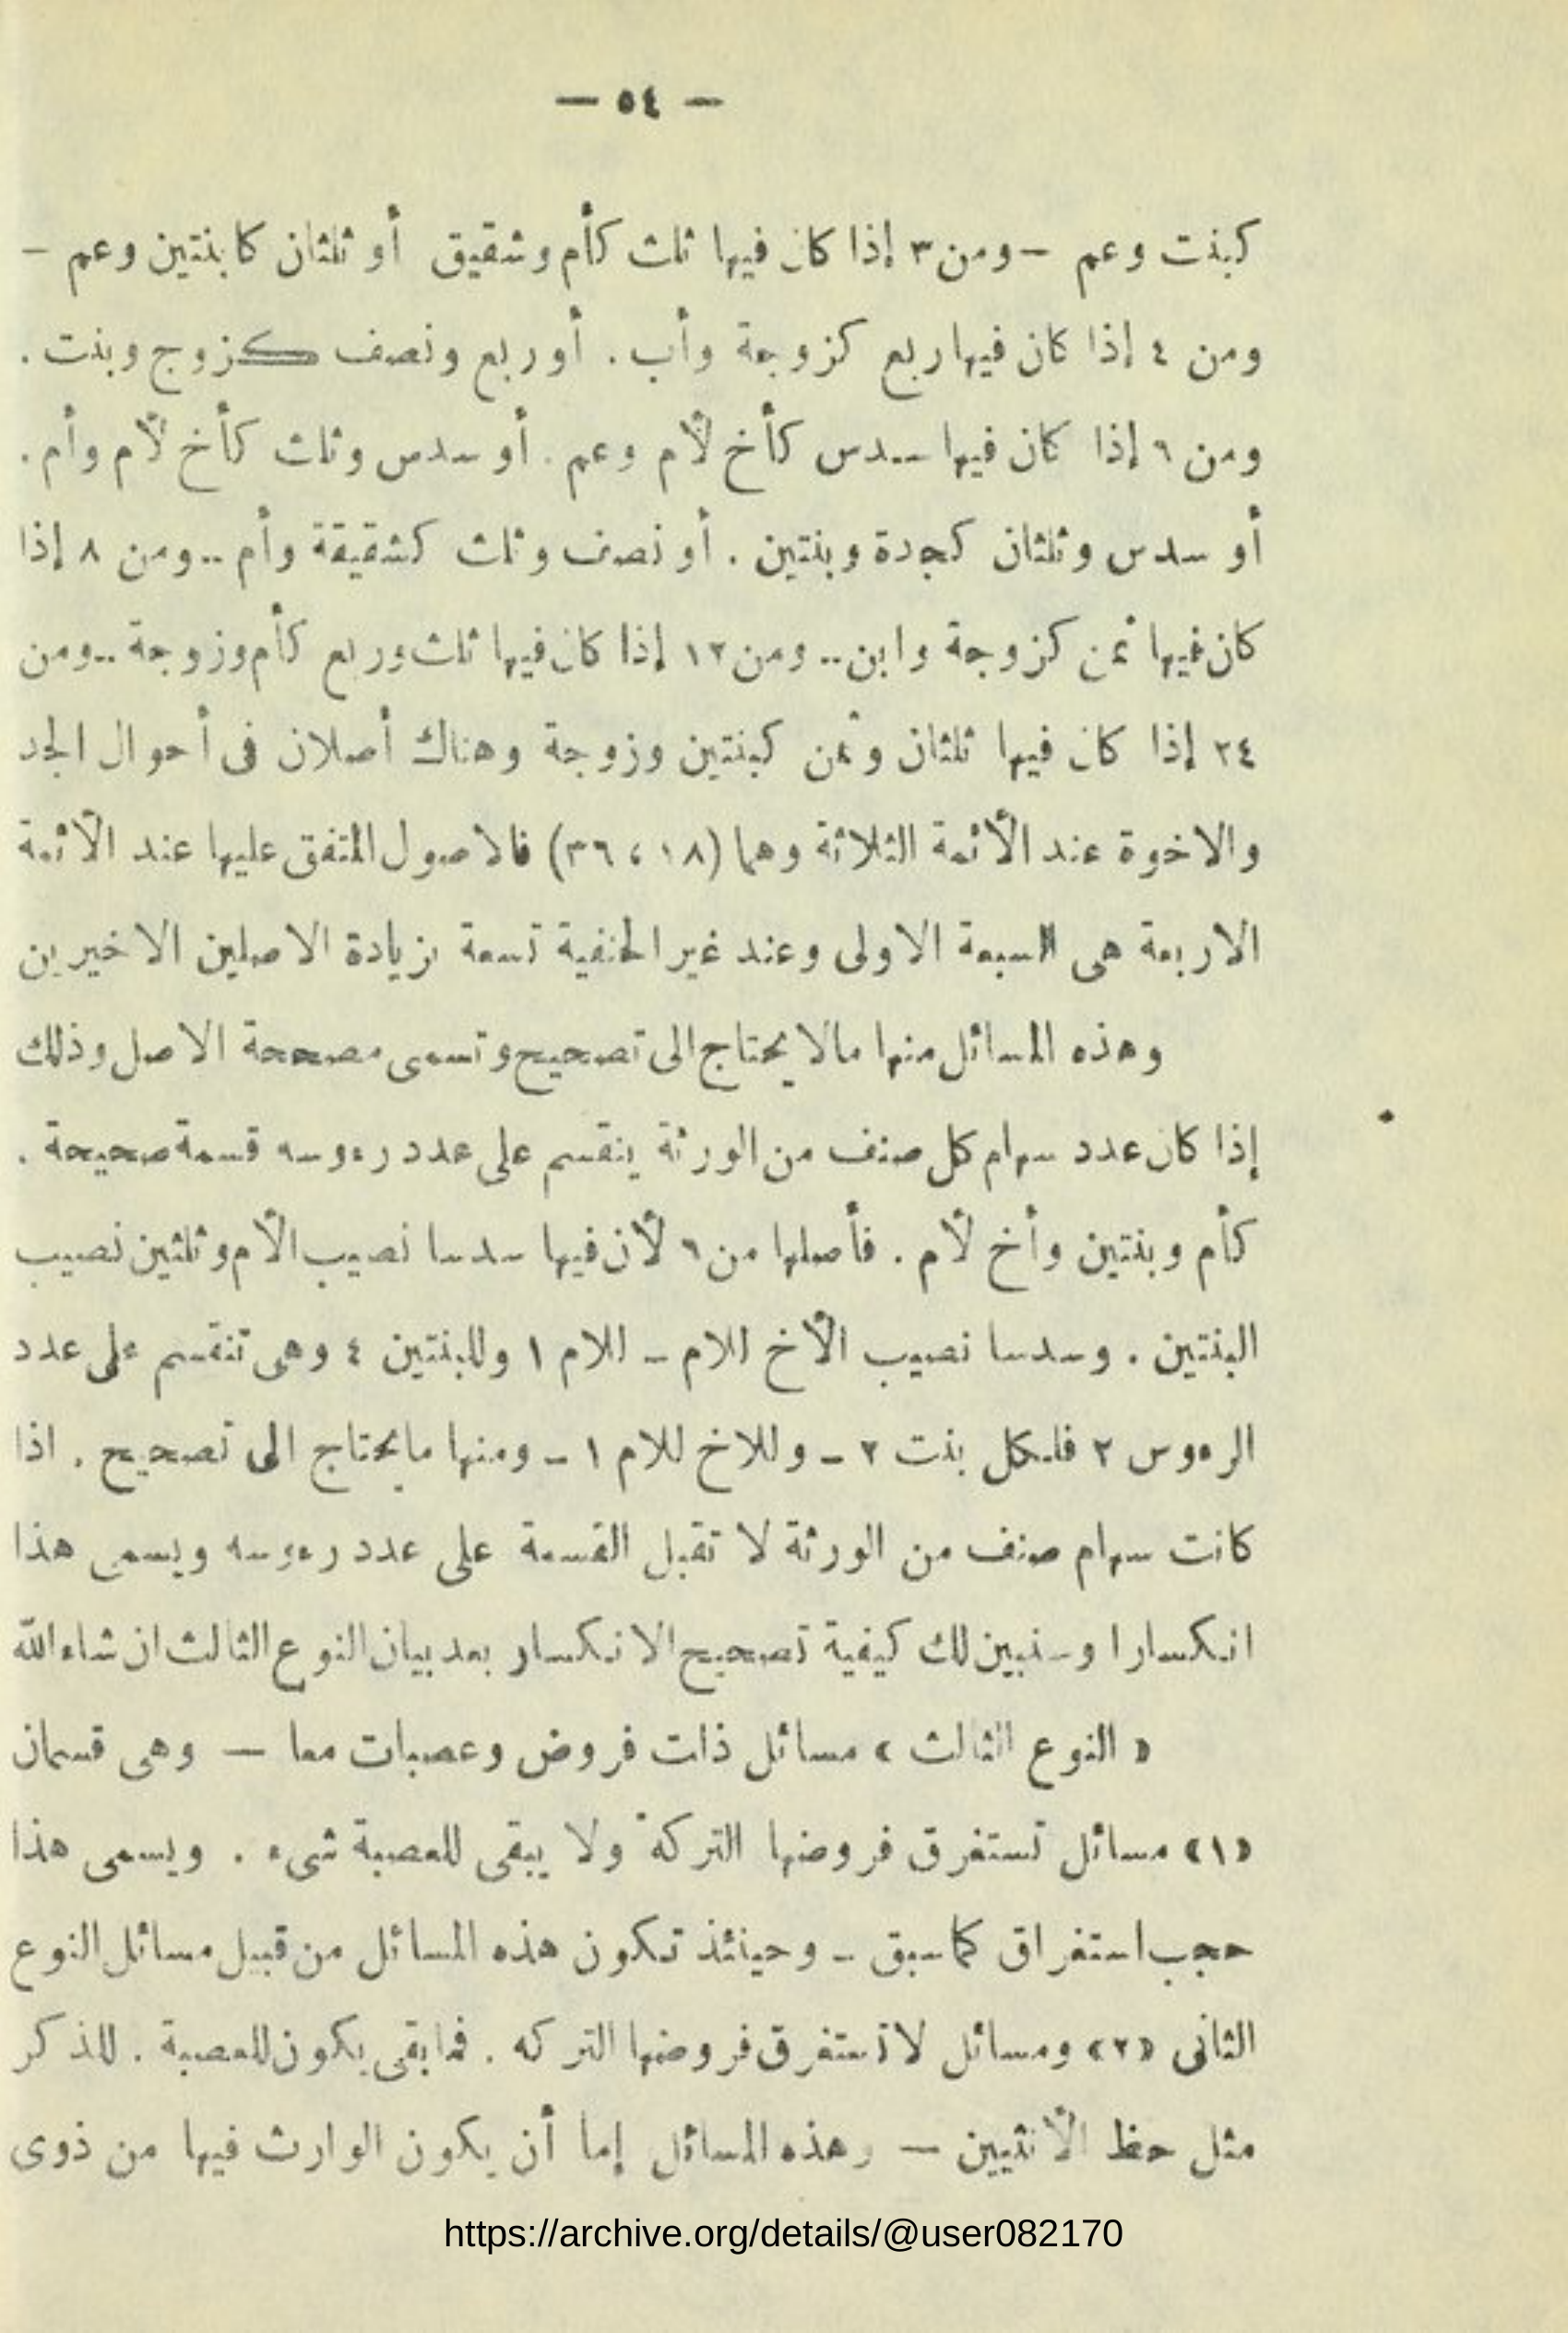 — ٥٤ —
كبنت وعم — ومن ٣ إذا كان فيها ثلث كأم وشقيق أو ثلثان كابنتين وعم —
ومن ٤ إذا كان فيها ربع كزوجة وأب . أو ربع ونصف كزوج وبنت .
ومن ٦ إذا كان فيها سدس كأخ لأم وعم . أو سدس وثلث كأخ لأم وأم .
أو سدس وثلثان كجدة وبنتين . أو نصف وثلث كشقيقة وأم .. ومن ٨ إذا
كان فيها ثمن كزوجة وابن .. ومن ١٢ إذا كان فيها ثلث وربع كأم وزوجة .. ومن
٢٤ إذا كان فيها ثلثان وثمن كبنتين وزوجة وهناك أصلان فى أحوال الجد
والاخوة عند الأئمة الثلاثة وهما (١٨ ، ٣٦) فالاصول المتفق عليها عند الأئمة
الاربعة هى السبعة الاولى وعند غير الحنفية تسعة بزيادة الاصلين الاخيرين
وهذه المسائل منها مالا يحتاج الى تصحيح وتسمى مصححة الاصل وذلك
إذا كان عدد سهام كل صنف من الورثة ينقسم على عدد رءوسه قسمة صحيحة .
كأم وبنتين وأخ لأم . فأصلها من ٦ لأن فيها سدسا نصيب الأم وثلثين نصيب
البنتين . وسدسا نصيب الأخ للام - للام ١ وللبنتين ٤ وهى تنقسم على عدد
الرءوس ٢ فلكل بنت ٢ - وللاخ للام ١ - ومنها ما يحتاج الى تصحيح . اذا
كانت سهام صنف من الورثة لا تقبل القسمة على عدد رءوسه ويسمى هذا
انكسارا وسنبين لك كيفية تصحيح الانكسار بعد بيان النوع الثالث ان شاء الله
« النوع الثالث » مسائل ذات فروض وعصبات معا — وهى قسمان
«١» مسائل تستغرق فروضها التركة ولا يبقى للعصبة شىء . ويسمى هذا
حجب استغراق كما سبق - وحينئذ تكون هذه المسائل من قبيل مسائل النوع
الثانى «٢» ومسائل لا تستغرق فروضها التركه . فما بقى يكون للعصبة . للذكر
مثل حظ الأنثيين — وهذه المسائل إما أن يكون الوارث فيها من ذوى
https://archive.org/details/@user082170